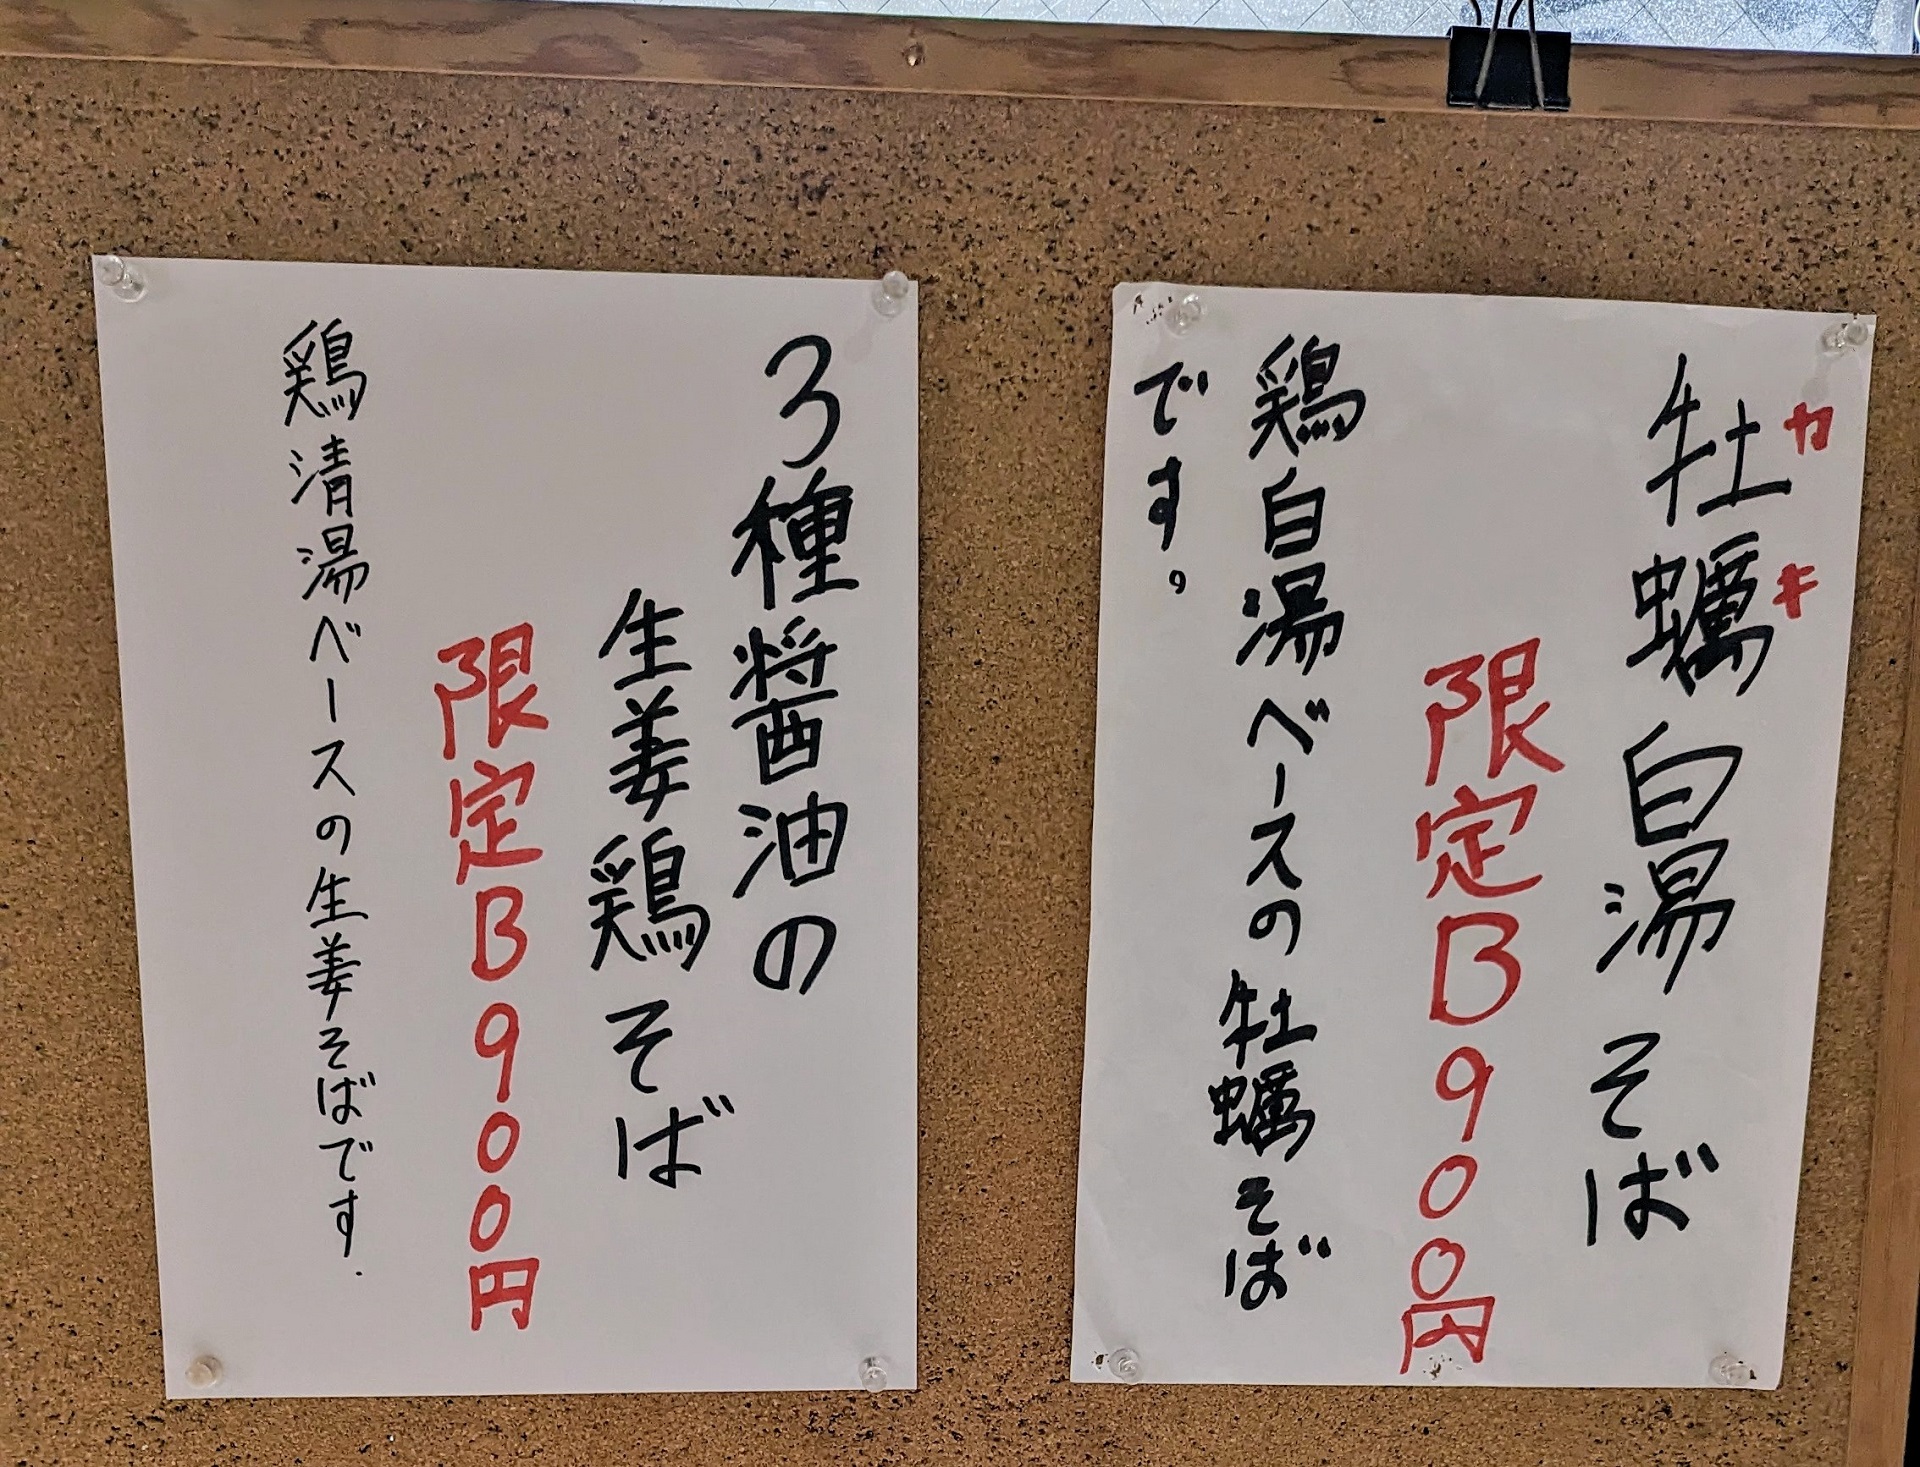 牡蠣白湯そば
カキ
限定B900円
鶏白湯ベースの牡蠣そば
です。
3種醤油の
生姜鶏そば
限定B900円
鶏清湯ベースの生姜そばです.